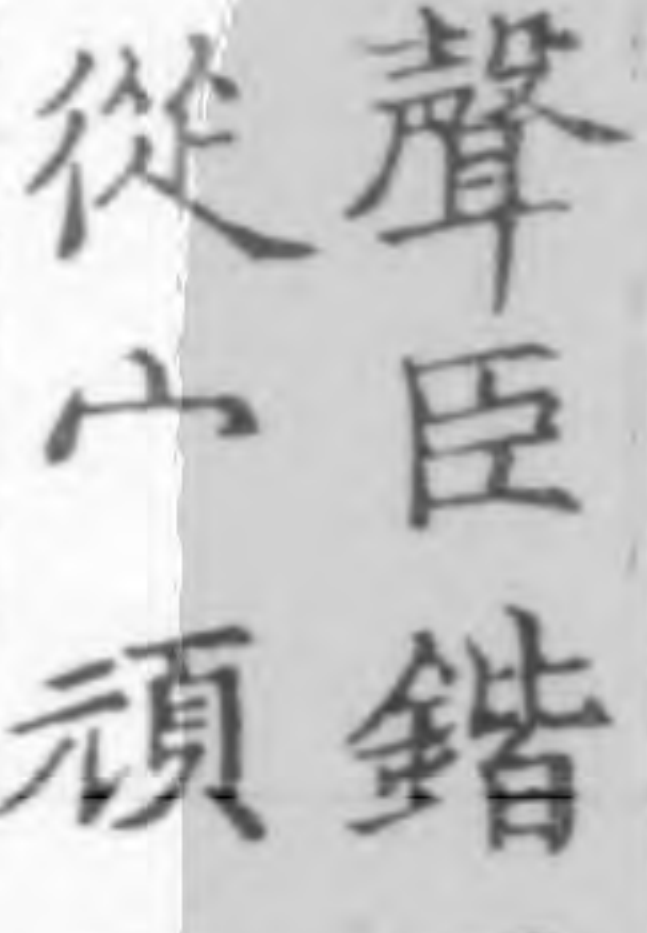 聲臣鍇
從宀頑